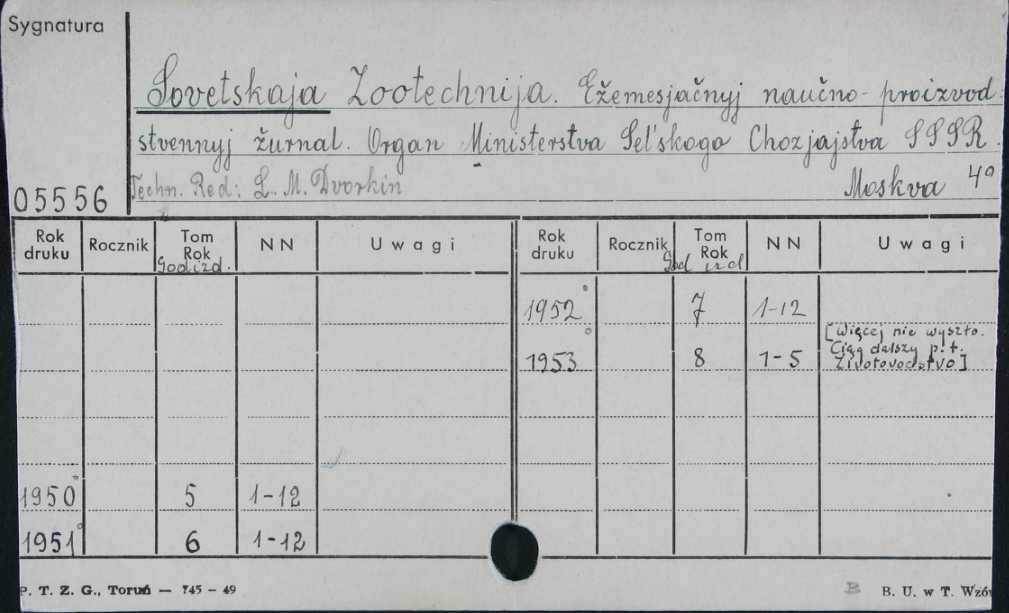 Sygnatura
Sovetskaja Zootechnija. Ežemesjačnyj naučno-proizvod-
stvennyj žurnal. Organ Ministerstva Sel'skogo Chozjajstva SSSR.
05556 Techn. Red: L. M. Dvorkin Moskva 4°
Rok druku Rocznik Tom Rok God izd. NN Uwagi Rok druku Rocznik Tom Rok God izd NN Uwagi
1952 7 1-12
[Więcej nie wyszło.
1953 8 1-5 Ciąg dalszy p.t.
Životovodstvo]
1950 5 1-12
1951 6 1-12
P. T. Z. G., Toruń — 745 – 49 B B. U. w T. Wzór